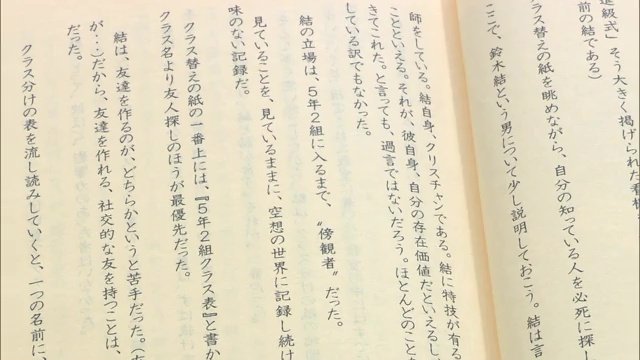 進級式」そう大きく掲げられた看板
クラス替えの紙を眺めながら、自分の知っている人を必死に探し
前の結である)
ここで、鈴木結という男について少し説明しておこう。結は言
師をしている。結自身、クリスチャンである。結に特技が有る
ことといえる。それが、彼自身、自分の存在価値だといえるし
きてこれた。と言っても、過言ではないだろう。ほとんどのこと
している訳でもなかった。
結の立場は、5年2組に入るまで、〝傍観者〟だった。
見ていることを、見ているままに、空想の世界に記録し続け
味のない記録だ。
クラス替えの紙の一番上には、『5年2組クラス表』と書か
クラス名より友人探しのほうが最優先だった。
結は、友達を作るのが、どちらかというと苦手だった。
が…)だから、友達を作れる、社交的な友を持つことは、
だった。
クラス分けの表を流し読みしていくと、一つの名前に、